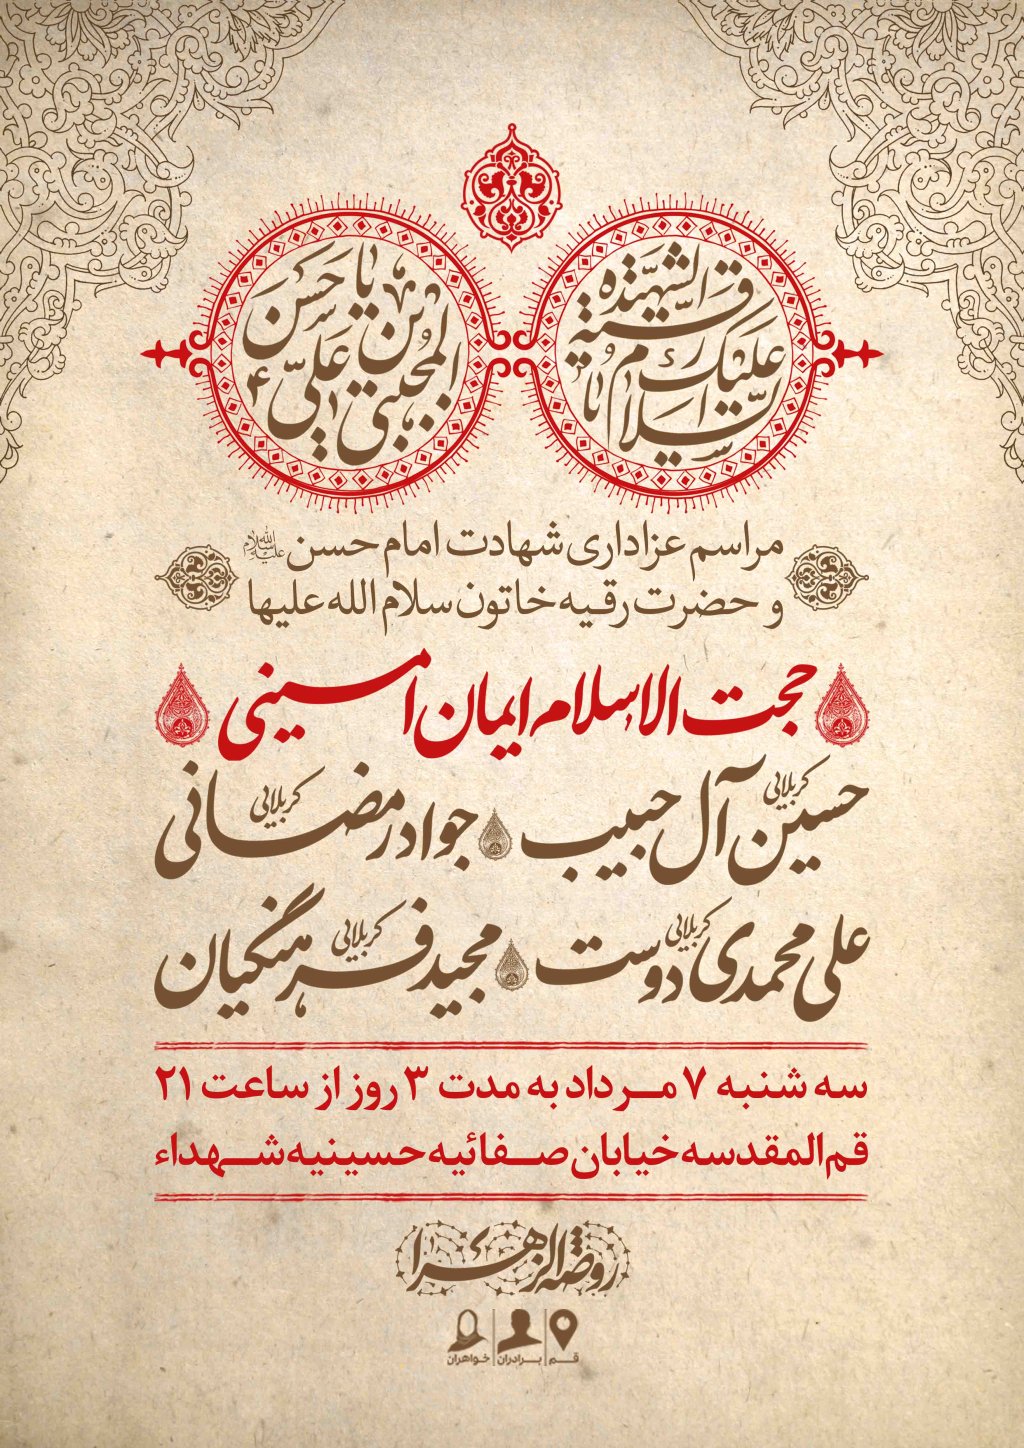 السلام علیک یا رقیة الشهیدة
یا حسن بن علی المجتبی ع
مراسم عزاداری شهادت امام حسن علیه‌السلام
و حضرت رقیه خاتون سلام الله علیها
حجت الاسلام ایمان امینی
کربلایی حسین آل حبیب کربلایی جواد رمضانی
کربلایی علی محمدی دوست کربلایی مجید فرهنگیان
سه شنبه ۷ مرداد به مدت ۳ روز از ساعت ۲۱
قم المقدسه خیابان صفائیه حسینیه شهداء
روضة الزهرا
قم | برادران | خواهران